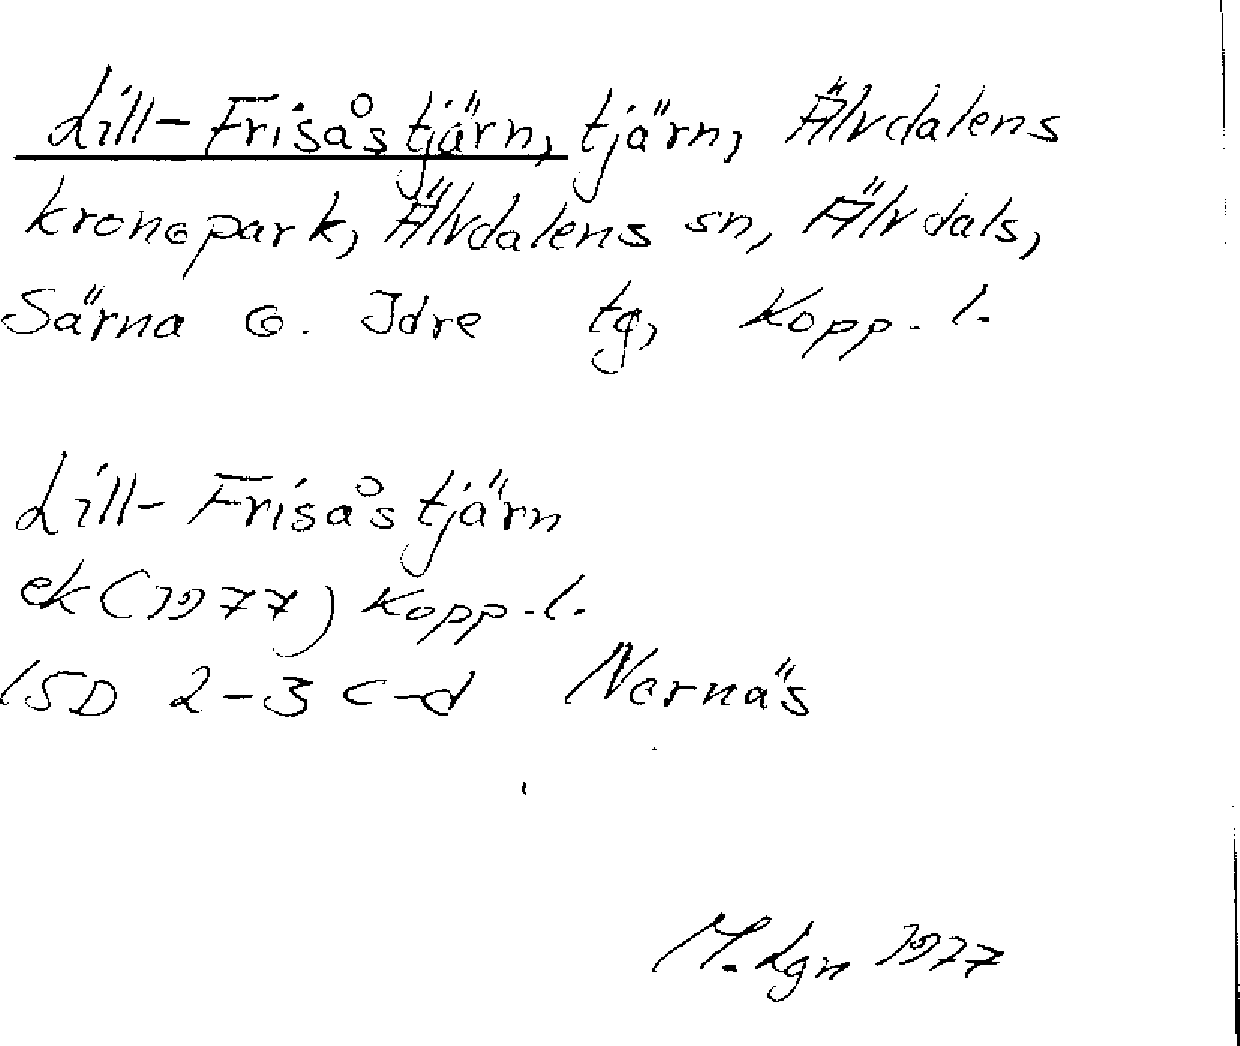 Lill-Frisåstjärn, tjärn, Älvdalens
kronopark, Älvdalens sn, Älvdals,
Särna o. Idre tg, Kopp. l.
Lill-Frisåstjärn
ek (1977) Kopp. l.
15D 2-3 c-d Nornäs
M. Lgn 1977